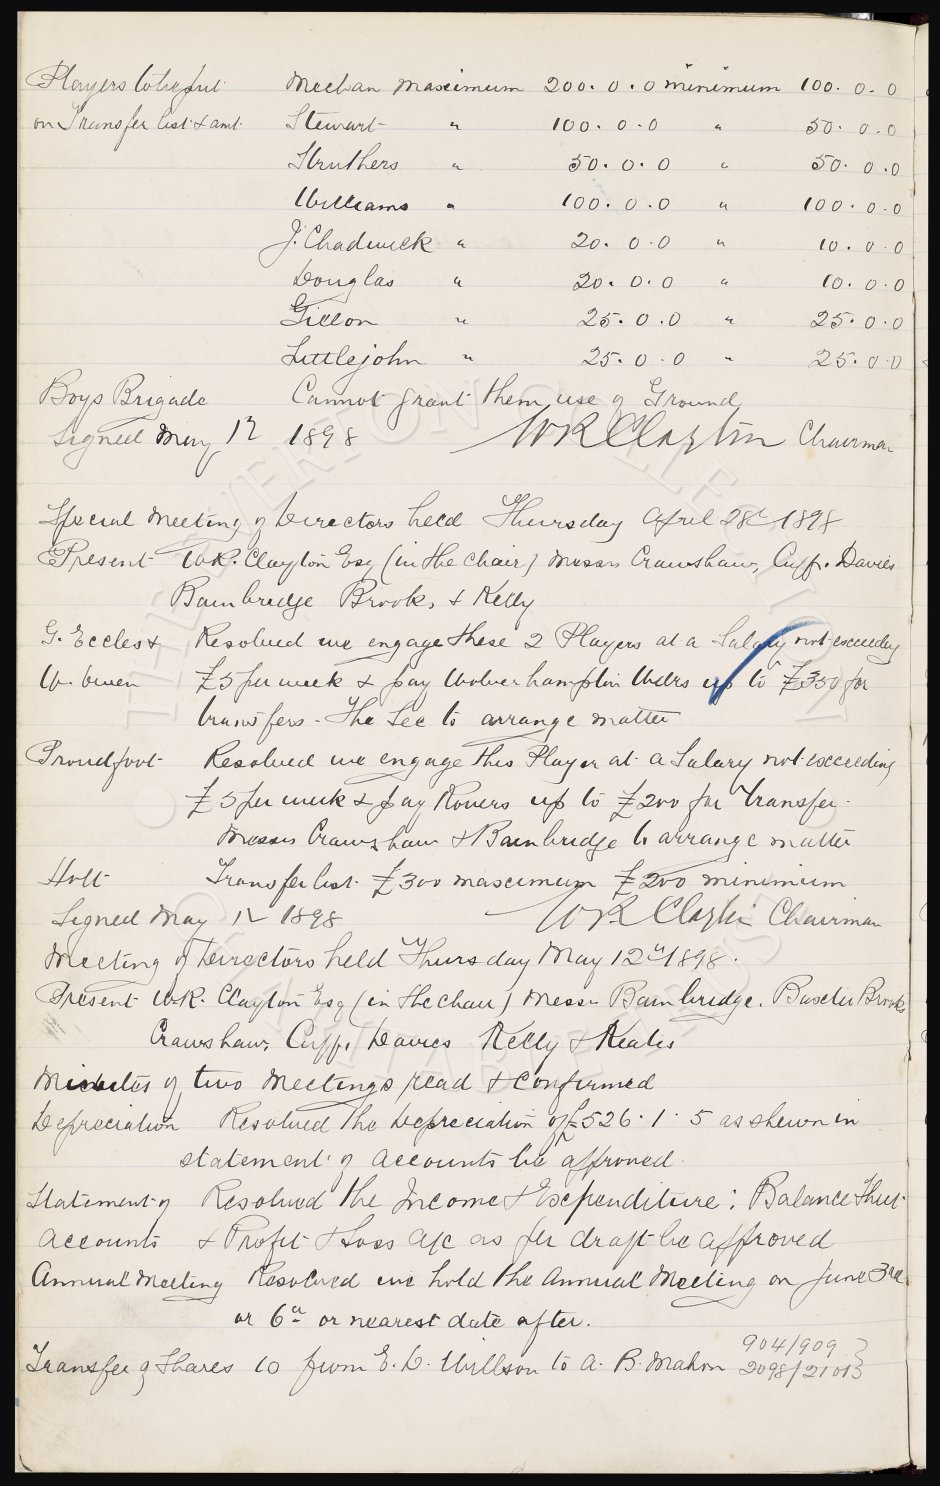 Players to be put Meehan maximum 200. 0. 0 minimum 100. 0. 0
on Transfer list & amt Stewart " 100. 0. 0 " 50. 0. 0
Struthers " 50. 0. 0 " 50. 0. 0
Williams " 100. 0. 0 " 100. 0. 0
J. Chadwick " 20. 0. 0 " 10. 0. 0
Douglas " 20. 0. 0 " 10. 0. 0
Gillon " 25. 0. 0 " 25. 0. 0
Littlejohn " 25. 0. 0 " 25. 0. 0
Boys Brigade Cannot grant them use of Ground
Signed May 12 1898 WR Clayton Chairman
Special Meeting of Directors held Thursday April 28th 1898
Present W.R. Clayton Esq (in the Chair) Messrs Crawshaw, Cuff, Davies
Bainbridge Brooks, & Kelly
G. Eccles & Resolved we engage these 2 Players at a Salary not exceeding
W. Owen £5 per week & pay Wolverhampton Wdrs up to £350 for
transfers - The Sec to arrange matter
Proudfoot Resolved we engage this Player at a Salary not exceeding
£5 per week & pay Rovers up to £200 for transfer.
Messrs Crawshaw & Bainbridge to arrange matter
Holt Transfer list. £300 maximum £200 minimum
Signed May 12 1898 WR Clayton Chairman
Meeting of Directors held Thursday May 12th 1898.
Present W.R. Clayton Esq (in the chair) Messrs Bainbridge, Baxter Brooks
Crawshaw, Cuff, Davies Kelly & Keates
Minutes of two Meetings read & confirmed
Depreciation Resolved the Depreciation of £526. 1. 5 as shewn in
statement of accounts be approved.
Statement of Resolved the Income & Expenditure: Balance Sheet
accounts & Profit & Loss a/c as per draft be approved
Annual Meeting Resolved we hold the Annual Meeting on June 3rd
or 6th or nearest date after.
904/909
Transfer of Shares 10 from E. D. Willson to A. B. Mahon 2098/2101
THE EVERTON COLLECTION